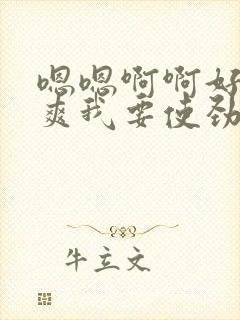 嗯嗯啊啊好
爽我要使劲
牛立文